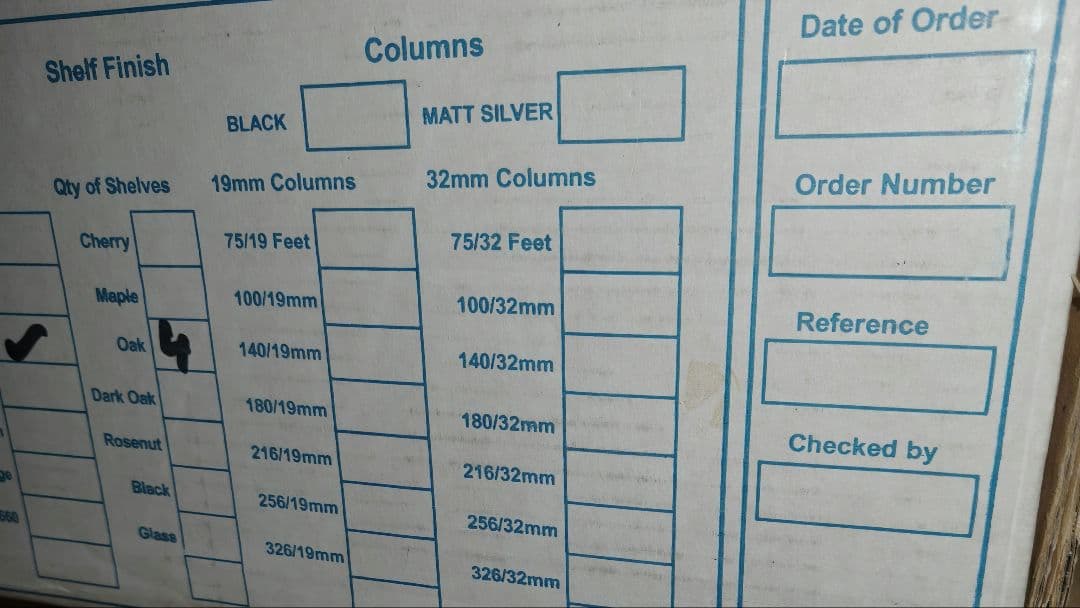 Shelf Finish
Columns
Date of Order
BLACK
MATT SILVER
Qty of Shelves
19mm Columns
32mm Columns
Order Number
Cherry
75/19 Feet
75/32 Feet
Maple
100/19mm
100/32mm
Reference
✓
Oak
4
140/19mm
140/32mm
Dark Oak
180/19mm
180/32mm
Checked by
Rosenut
216/19mm
216/32mm
Black
256/19mm
256/32mm
Glass
326/19mm
326/32mm